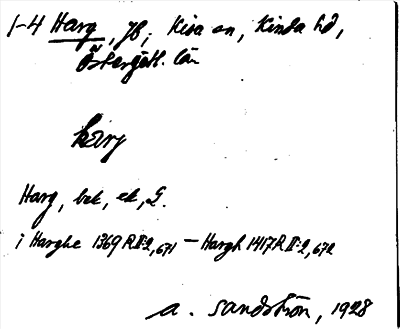 1-4 Harg, jb, Kisa sn, Kinda hd,
Östergötl. län
harj
Harg, bek, ek, G.
i Harghe 1369 R II:2, 671 — Hargh 1417 R II:2, 672
A. Sandström, 1928